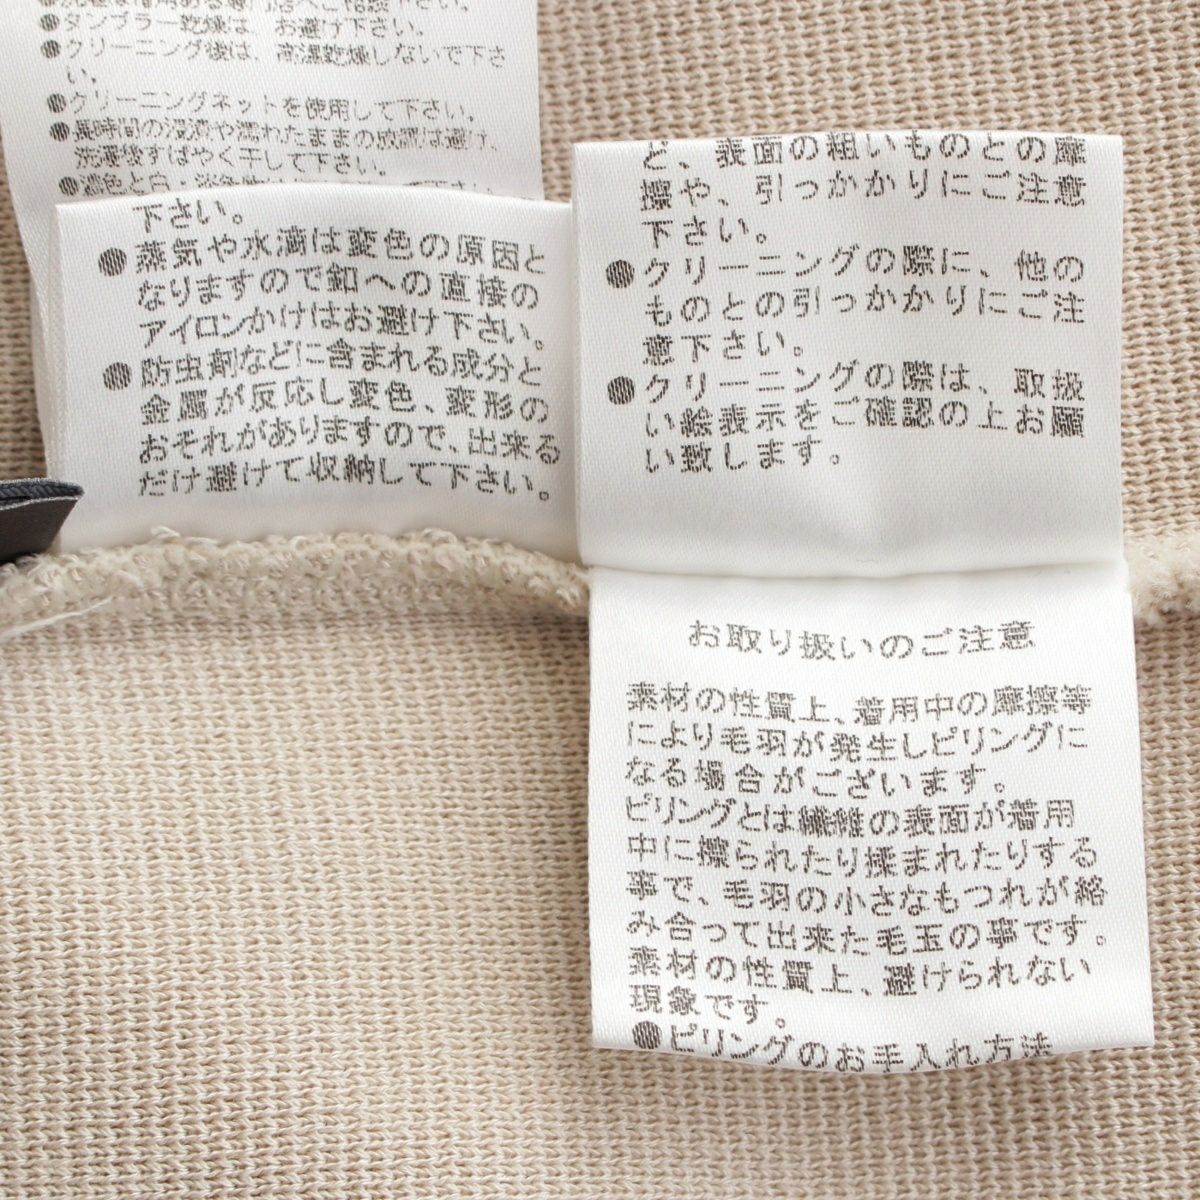 ●タンブラー乾燥は お避け下さい。
●クリーニング後は、高温乾燥しないで下さ
い。
●クリーニングネットを使用して下さい。
●長時間の浸漬や濡れたままの放置は避け、
洗濯後すばやく干して下さい。
●濃色と白・淡色
下さい。
●蒸気や水滴は変色の原因と
なりますので釦への直接の
アイロンかけはお避け下さい。
●防虫剤などに含まれる成分と
金属が反応し変色、変形の
おそれがありますので、出来る
だけ避けて収納して下さい。
ど、表面の粗いものとの摩
擦や、引っかかりにご注意
下さい。
●クリーニングの際に、他の
ものとの引っかかりにご注
意下さい。
●クリーニングの際は、取扱
い絵表示をご確認の上お願
い致します。
お取り扱いのご注意
素材の性質上、着用中の摩擦等
により毛羽が発生しピリングに
なる場合がございます。
ピリングとは繊維の表面が着用
中に擦られたり揉まれたりする
事で、毛羽の小さなもつれが絡
み合って出来た毛玉の事です。
素材の性質上、避けられない
現象です。
●ピリングのお手入れ方法